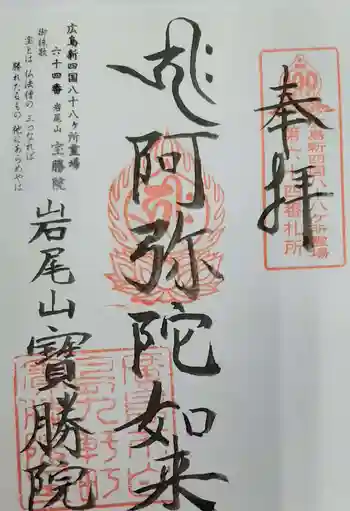 奉拝
広島新四国八十八ヶ所霊場
第六十四番札所
阿弥陀如来
広島新四国八十八ヶ所霊場
六十四番 岩尾山 宝勝院
御詠歌
宝とは 仏法僧の 三つなれば
勝れたるもの 他にあらめやは
岩尾山 寶勝院